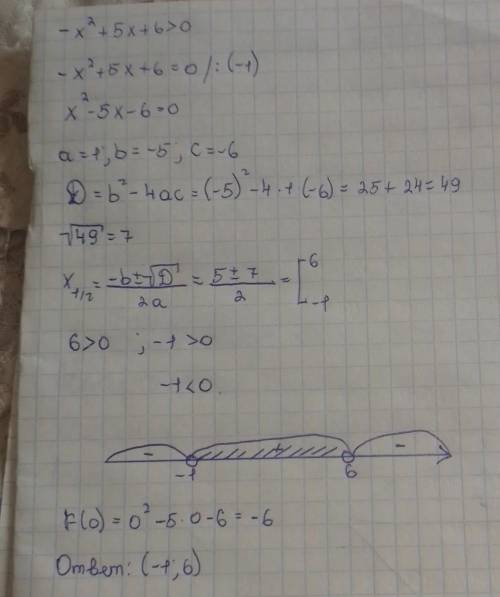 -x²+5x+6>0
-x²+5x+6=0/:(-1)
x²-5x-6=0
a=1; b=-5; c=-6
D=b²-4ac=(-5)²-4·1(-6)=25+24=49
√49=7
x₁/₂=(-b±√D)/2a=(5±7)/2=[6
-1
6>0 ; -1>0
-1<0.
- + -
-1 6
F(0)=0²-5·0-6=-6
Ответ: (-1; 6)